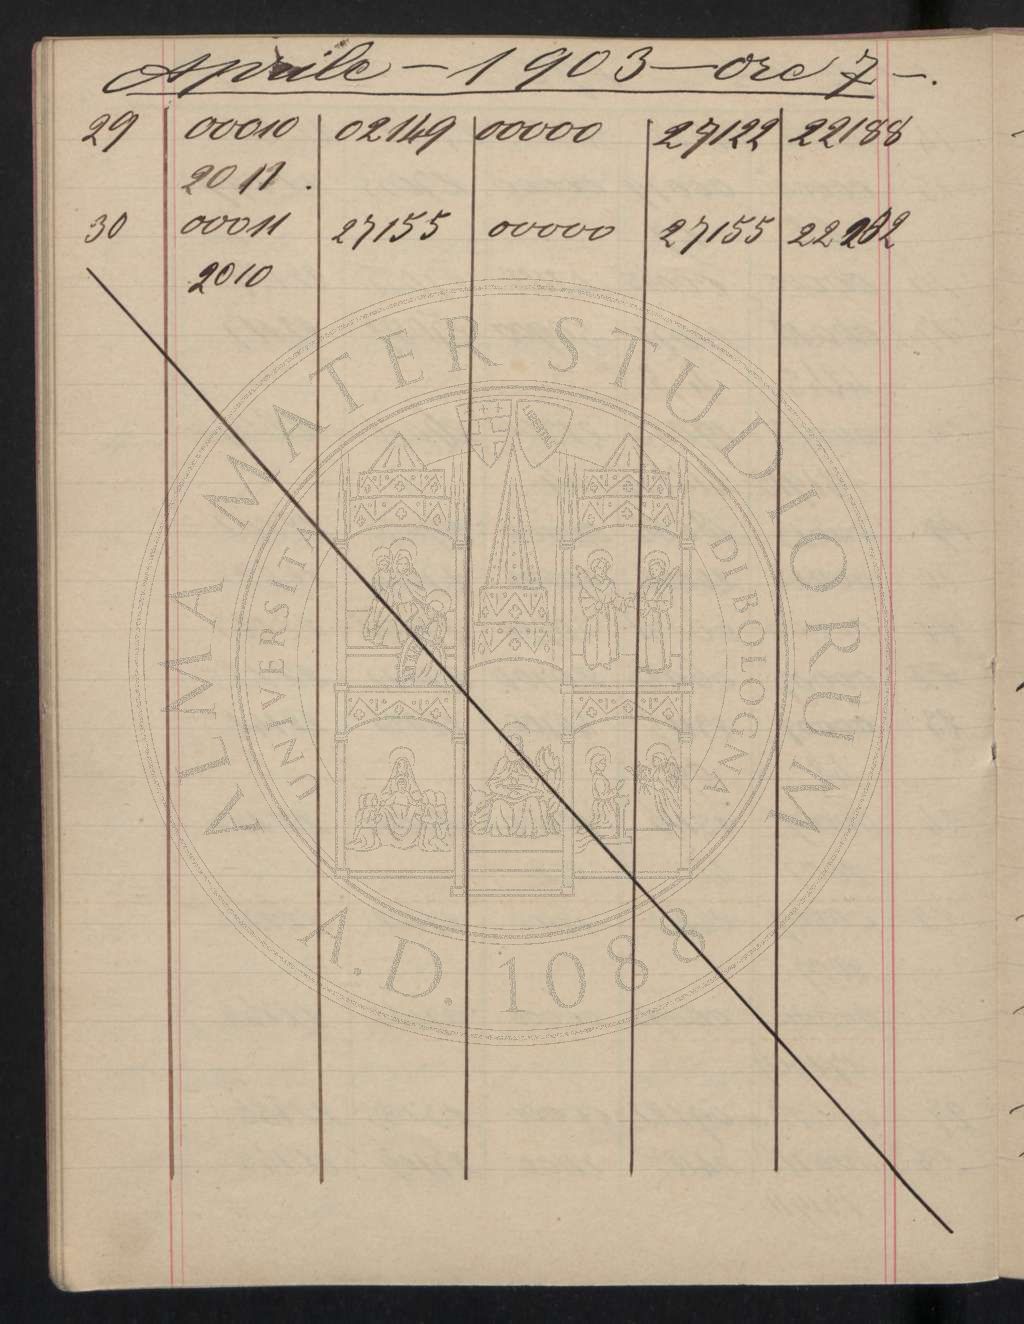 Aprile - 1903 - ore 7 -.
29 00010 02149 00000 27122 22188
2011.
30 00011 27155 00000 27155 22202
2010
ALMA MATER STUDIORUM
UNIVERSITA DI BOLOGNA
LIBERTAS
A.D. 1088